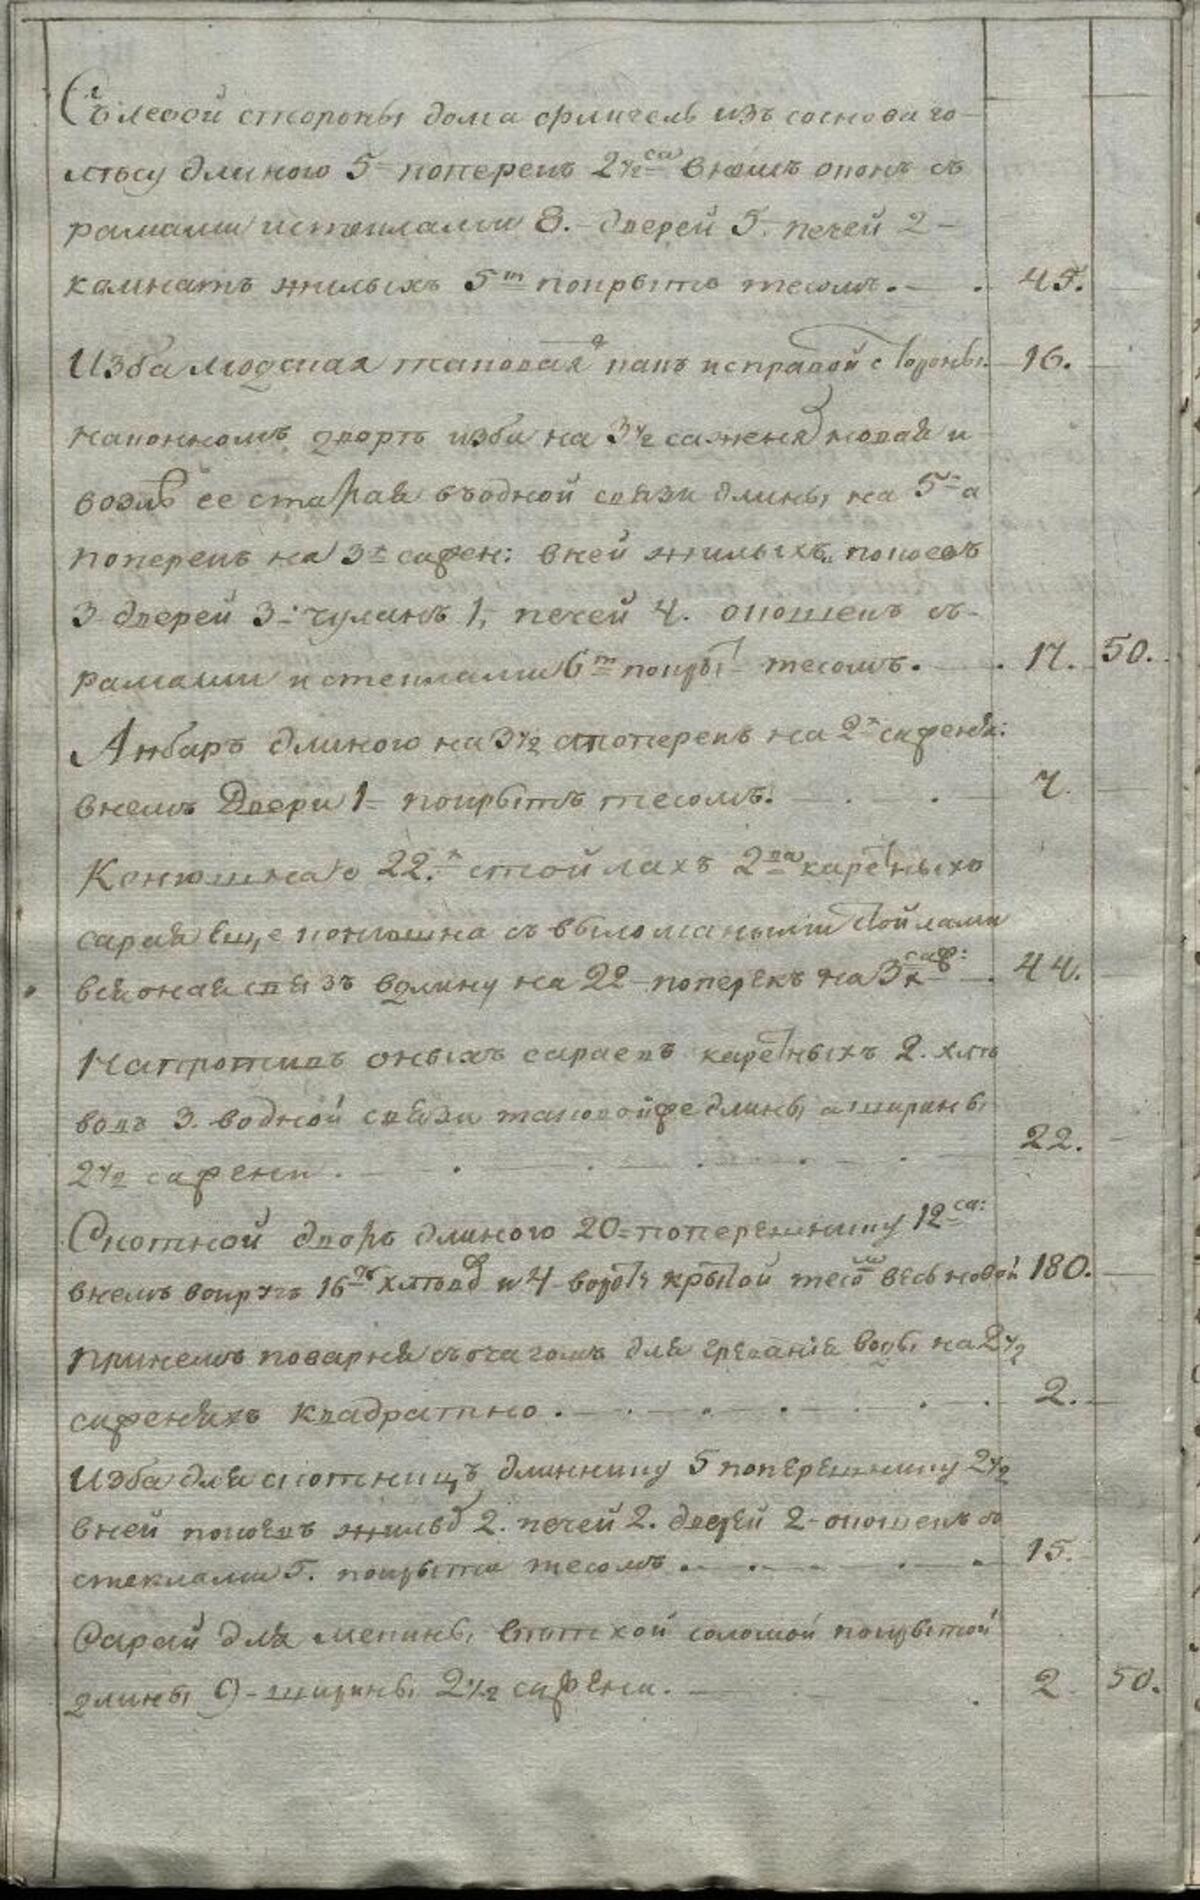 Съ левой стороны дома флигель изъ сосноваго
лѣсу длиною 5 поперекъ 2 1/2 са в немъ оконъ съ
рамами и стеклами 8. дверей 5. печей 2
комнатъ жилыхъ 5т покрыто тесомъ. 45.
Изба людская таковая какъ и с правой стороны. 16.
на конномъ дворѣ изба на 3 1/2 саженя новая и
возлѣ ее старая въ одной связи длины на 5 а
поперекъ на 3 сажен: в ней жилыхъ покоевъ
3 дверей 3: чуланъ 1, печей 4. окошекъ съ
рамами и стеклами 6т покрыт тесомъ. 17. 50.
Анбаръ длиною на 3 1/2 а поперекъ на 2 саженя:
в немъ двери 1 покрытъ тесомъ. 7.
Конюшна о 22. стойлахъ 2ва каретныхъ
сарая еще конюшна съ выломаными стойлами
вся оная связъ в длину на 22 поперекъ на 3 саж: 44.
Напротивъ оныхъ сараевъ каретныхъ 2. хлѣ
вовъ 3. в одной связи таковой же длины а ширины
2 1/2 сажени. 22.
Скотной дворъ длиною 20 поперешнику 12 са:
в немъ вокругъ 16ть хлѣвовъ и 4 воротъ крытой тесомъ весь новой 180.
При немъ поварня съ очагомъ для грѣвания воды на 2 1/2
саженяхъ квадратно. 2.
Изба для скотницъ длиннику 5 поперешнику 2 1/2
в ней покоевъ жилых 2. печей 2. дверей 2 окошекъ съ
стеклами 5. покрыта тесомъ. 15.
Сарай для мекины скотской соломой покрытой
длины 9 ширины 2 1/2 сажени. 2 50.